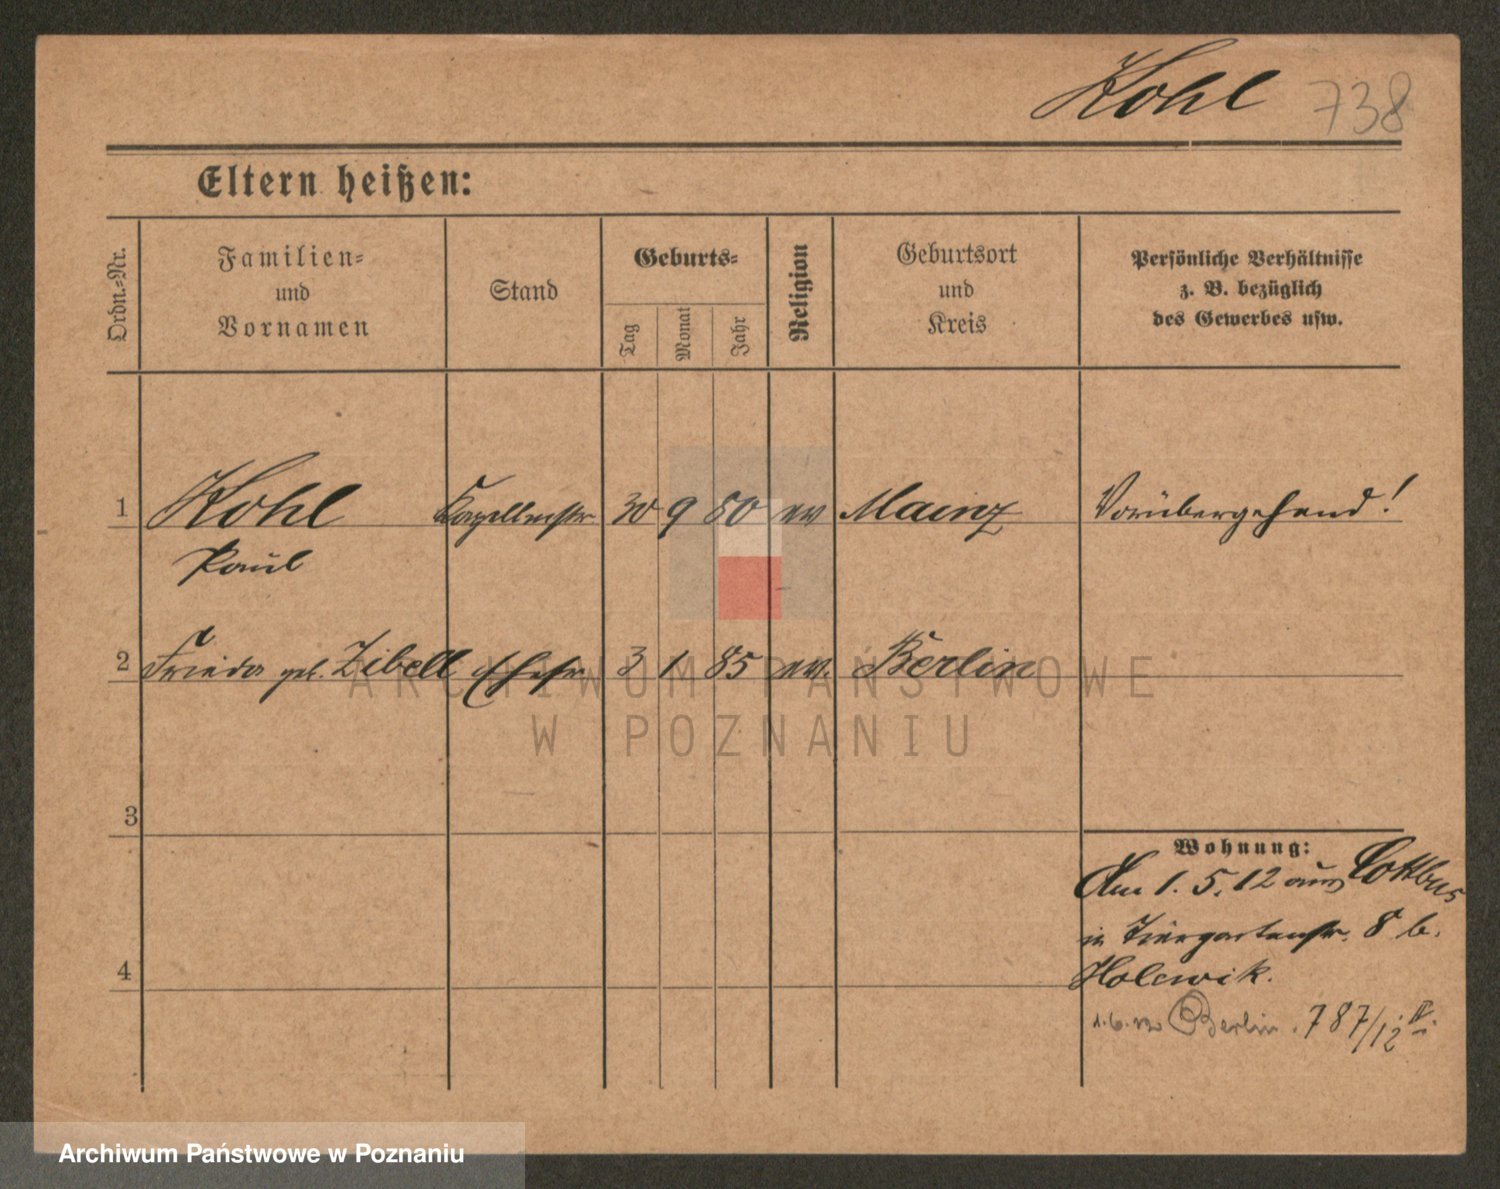 Kohl 738
Eltern heißen:
Ordn.-Nr.
Familien-
und
Vornamen
Stand
Geburts-
Tag
Monat
Jahr
Religion
Geburtsort
und
Kreis
Persönliche Verhältnisse
z. B. bezüglich
des Gewerbes usw.
1 Kohl Kapellmstr 30 9 80 ev Mainz Vorübergehend!
Paul
2 Frieda geb. Zibell Ehefr 3 1 85 ev. Berlin
ARCHIWUM PAŃSTWOWE
W POZNANIU
3
Wohnung:
Am 1. 5. 12 aus Cottbus
in Tiergartenstr. 8 b.
4
Berlin. 787/12
Archiwum Państwowe w Poznaniu